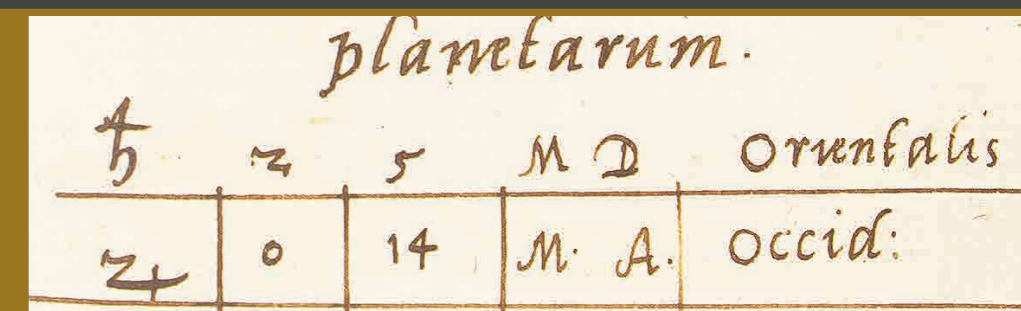 planetarum.
♄ 2 5 M D Orientalis
♃ 0 14 M. A. Occid: